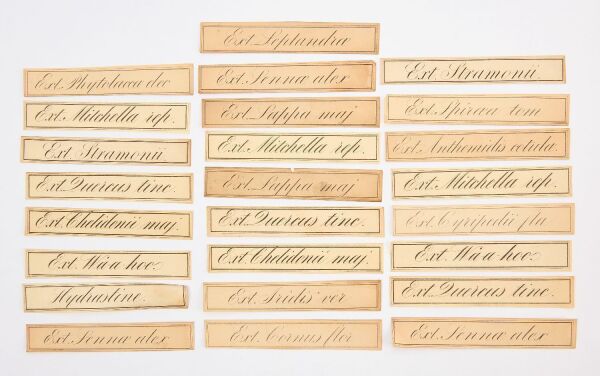 Ext. Leptandra
Ext. Phytolacca dec
Ext. Mitchella rep.
Ext. Stramonii.
Ext. Quercus tinc.
Ext. Chelidonii maj.
Ext. Wa a hoo.
Hydrastine.
Ext. Senna alex
Ext. Senna alex
Ext. Lappa maj
Ext. Mitchella rep.
Ext. Lappa maj
Ext. Quercus tinc.
Ext. Chelidonii maj.
Ext. Iridis ver
Ext. Cornus flor
Ext. Stramonii.
Ext. Spiraea tom
Ext. Anthemidis cotula.
Ext. Mitchella rep.
Ext. Cypripedii
Ext. Wa a hoo.
Ext. Quercus tinc.
Ext. Senna alex